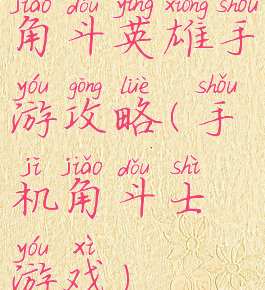 jiǎo dòu yīng xióng shǒu
角斗英雄手
yóu gōng lüè shǒu
游攻略(手
jī jiǎo dǒu shì
机角斗士
yóu xì
游戏)